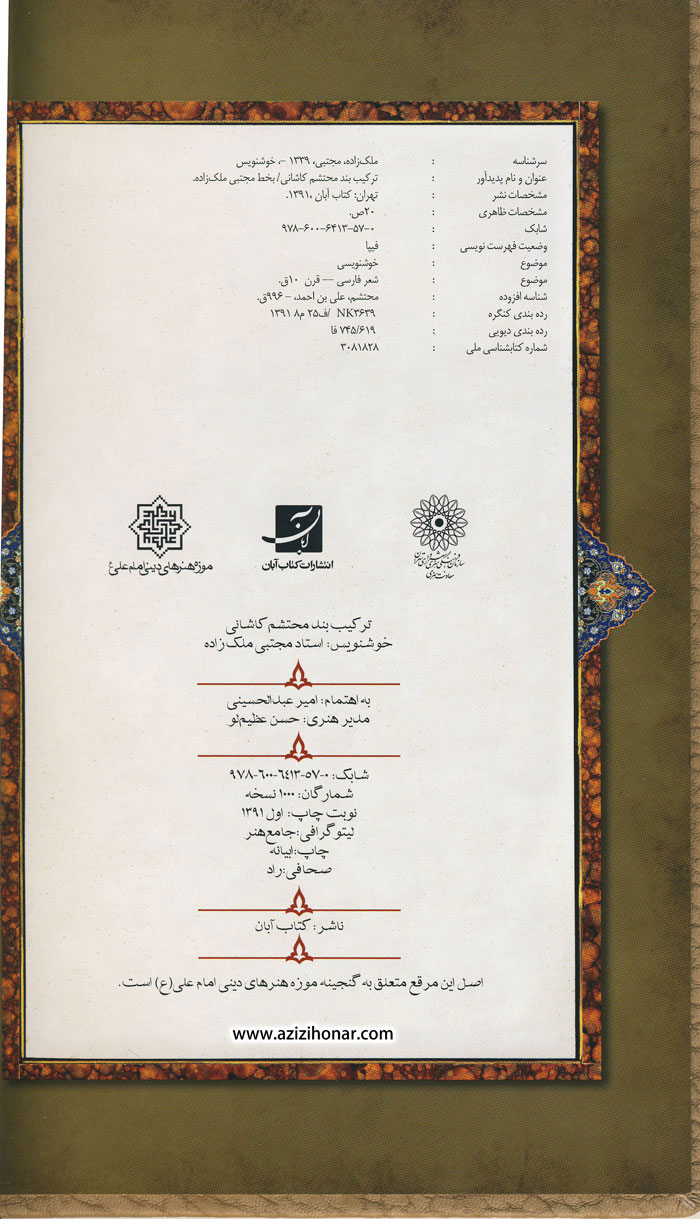 سرشناسه : ملک‌زاده، مجتبی، ۱۳۳۹ -، خوشنویس
عنوان و نام پدیدآور : ترکیب بند محتشم کاشانی/ بخط مجتبی ملک‌زاده.
مشخصات نشر : تهران: کتاب آبان ،۱۳۹۱.
مشخصات ظاهری : ۲۰ص.
شابک : ۹۷۸-۶۰۰-۶۴۱۳-۵۷-۰
وضعیت فهرست نویسی : فیپا
موضوع : خوشنویسی
موضوع : شعر فارسی -- قرن ۱۰ق.
شناسه افزوده : محتشم، علی بن احمد، - ۹۹۶ق.
رده بندی کنگره : NK۳۶۳۹ /ف۲۵ م۸ ۱۳۹۱
رده بندی دیویی : ۷۴۵/۶۱۹ فا
شماره کتابشناسی ملی : ۳۰۸۱۸۲۸
معاونت هنری
آبان
انتشارات کتاب آبان
موزه هنرهای دینی امام علی ع
ترکیب بند محتشم کاشانی
خوشنویس: استاد مجتبی ملک زاده
به اهتمام: امیر عبدالحسینی
مدیر هنری: حسن عظیم‌لو
شابک: ۰-۵۷-۶۴۱۳-۶۰۰-۹۷۸
شمارگان: ۱۰۰۰ نسخه
نوبت چاپ: اول ۱۳۹۱
لیتوگرافی:جامع‌هنر
چاپ:ابیانه
صحافی:راد
ناشر: کتاب آبان
اصل این مرقع متعلق به گنجینه موزه هنرهای دینی امام علی(ع) است.
www.azizihonar.com